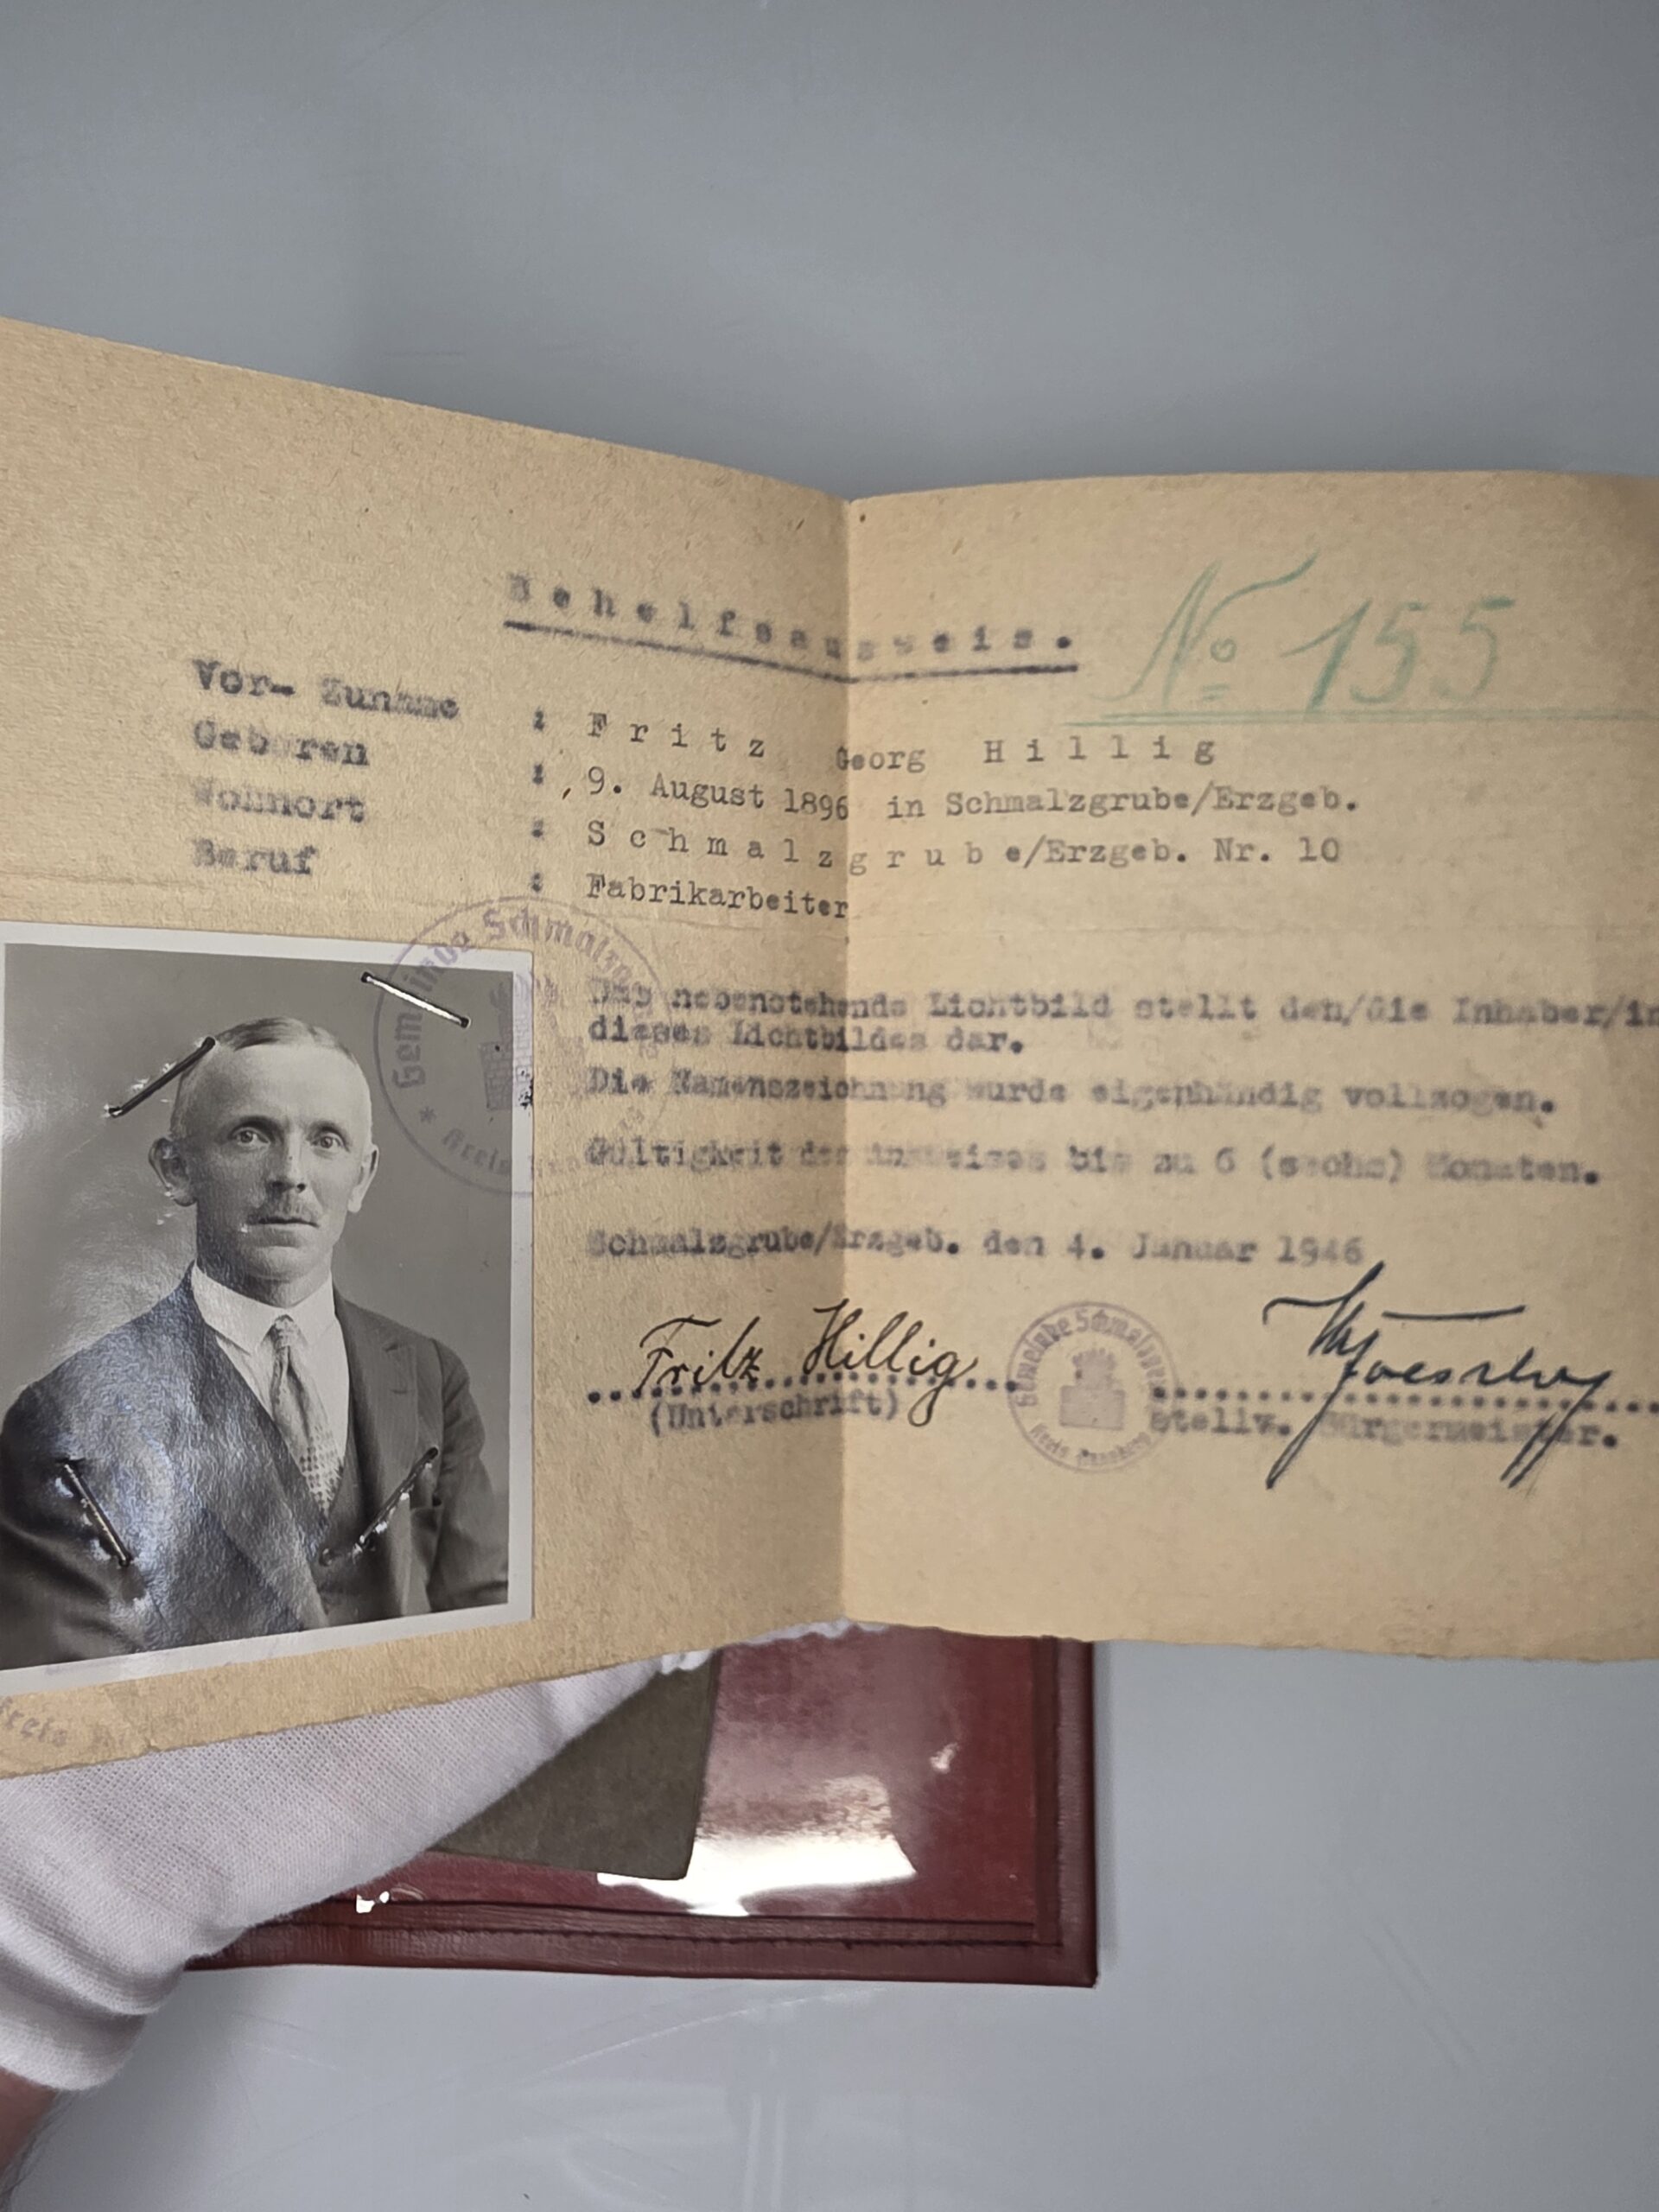 Behelfsausweis.
No 155
Vor- Zuname : Fritz Georg Hillig
Geboren : 9. August 1896 in Schmalzgrube/Erzgeb.
Wohnort : Schmalzgrube/Erzgeb. Nr. 10
Beruf : Fabrikarbeiter
Gemeinde Schmalzgr
Kreis
Das nebenstehende Lichtbild stellt den/die Inhaber/in
dieses Lichtbildes dar.
Die Namenszeichnung wurde eigenhändig vollzogen.
Gültigkeit des Ausweises bis zu 6 (sechs) Monaten.
Schmalzgrube/Erzgeb. den 4. Januar 1946
Fritz Hillig
(Unterschrift)
Gemeinde Schmalzgrube
Kreis Annaberg
stellv. Bürgermeister.
Kreis